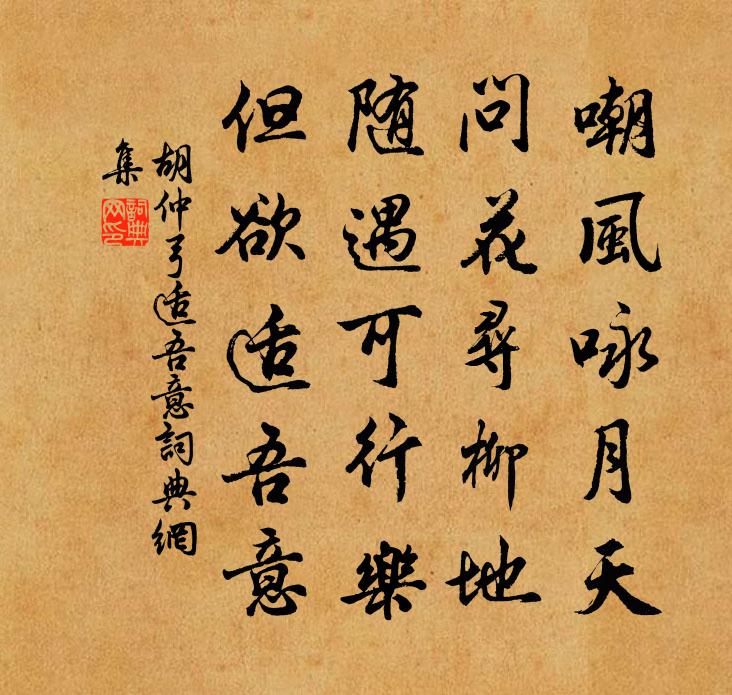 嘲風咏月天
問花尋柳地
随遇可行樂
但欲适吾意
胡仲弓适吾意詞典網
集
詞典網印